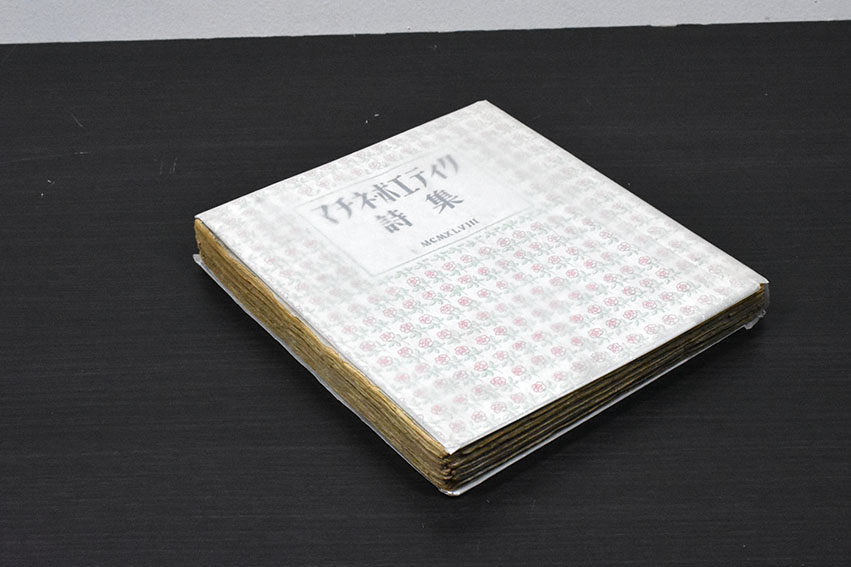 マチネ・ポエティク
詩集
MCMXLVIII